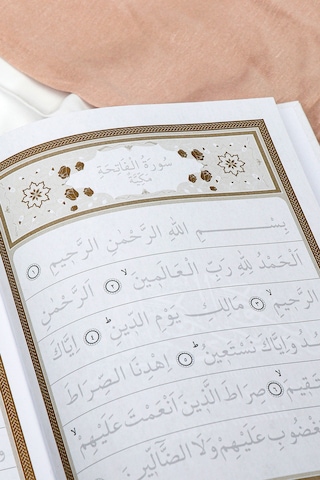 سُورَةُ الْفَاتِحَةِ
مَكِّيَّةٌ
بِسْمِ اللّٰهِ الرَّحْمٰنِ الرَّحٖيمِ ١
اَلْحَمْدُ لِلّٰهِ رَبِّ الْعَالَمٖينَ ٢ اَلرَّحْمٰنِ
الرَّحٖيمِ ٣ مَالِكِ يَوْمِ الدّٖينِ ٤ اِيَّاكَ
وَاِيَّاكَ نَسْتَعٖينُ ٥ اِهْدِنَا الصِّرَاطَ
٦ صِرَاطَ الَّذٖينَ اَنْعَمْتَ عَلَيْهِمْ
عَلَيْهِمْ وَلَا الضَّٓالّٖينَ